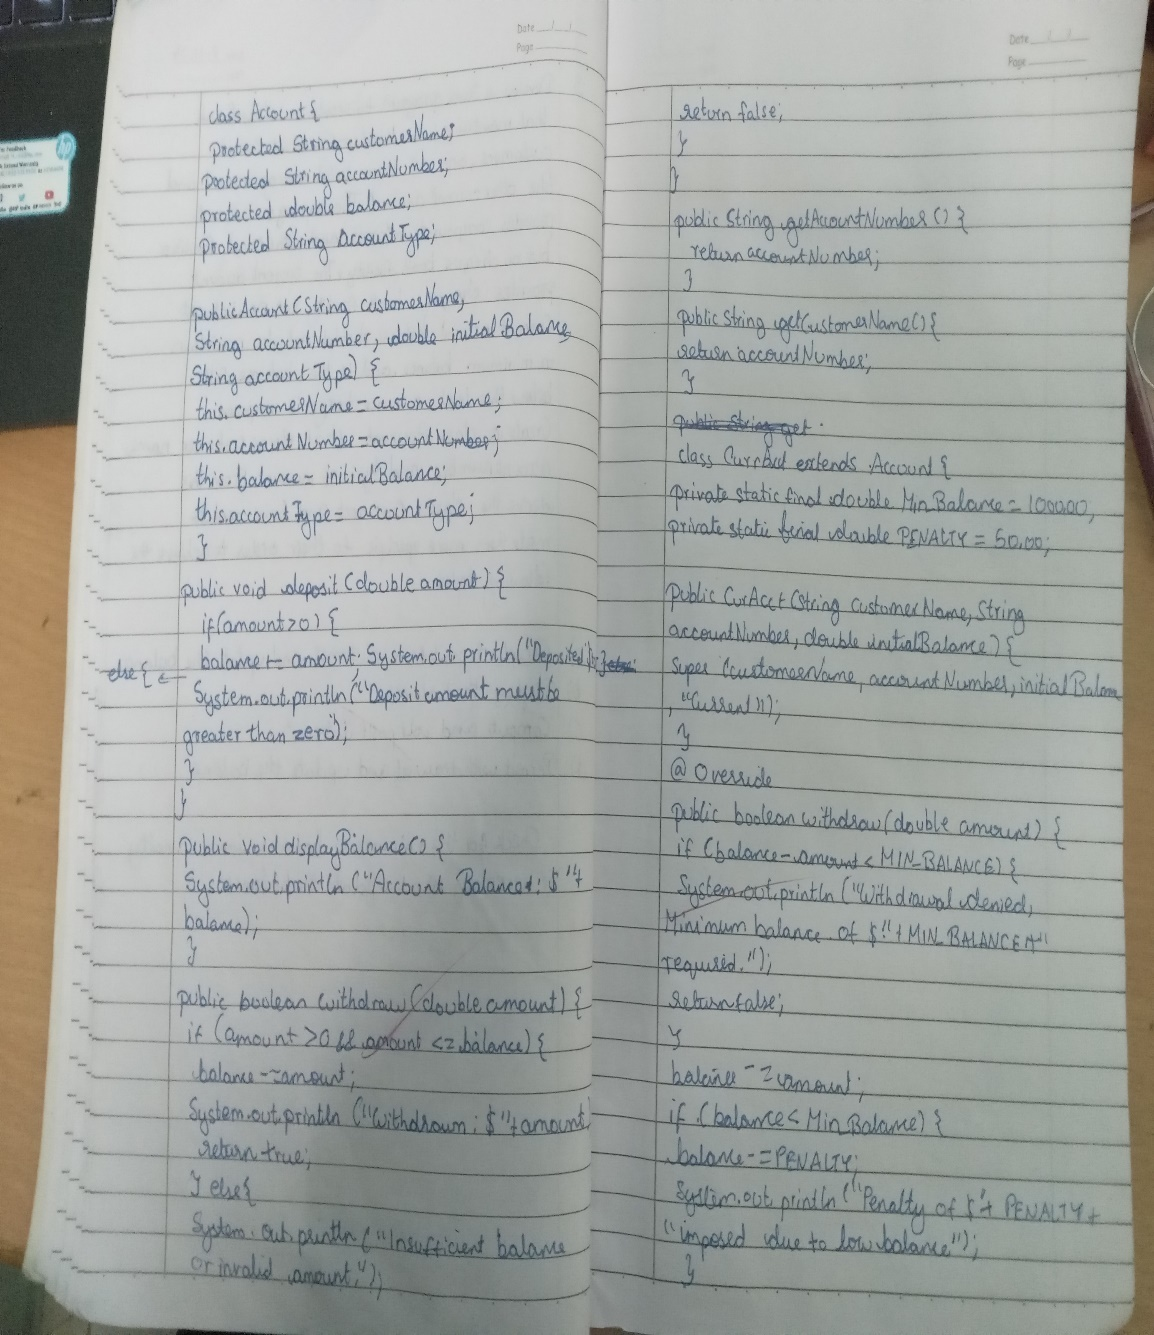 Date
Page
class Account {
protected String customerName;
potected String accountNumber;
protected double balance;
protected String AccountType;
public Account (String customerName,
String accountNumber, double initialBalance,
String accountType) {
this.customerName = customerName;
this.accountNumber = accountNumber;
this.balance = initialBalance;
this.accountType = accountType;
}
public void deposit (double amount) {
if (amount > 0) {
else { ← balance += amount; System.out.println("Deposited"); }
System.out.println ("Deposit amount must be
greater than zero);
}
}
public void displayBalance() {
System.out.println ("Account Balanced: $"+
balance);
}
public boolean withdraw (double amount) {
if (amount > 0 && amount <= balance) {
balance -= amount;
System.out.println ("Withdrawn: $" + amount)
return true;
} else {
System.out.println ("Insufficient balance
or invalid amount.");
Date
Page
return false;
}
}
public String getAccountNumber () {
return accountNumber;
}
public String getCustomerName() {
return accountNumber;
}
public String get
class extends Account {
private static final double Min_Balance = 1000.00,
private static final double PENALTY = 50.00;
public CurAcct (String customerName, String
accountNumber, double initialBalance) {
super (customerName, accountNumber, initialBalance
, "Current");
}
@ Override
public boolean withdraw (double amount) {
if (balance - amount < MIN_BALANCE) {
System.out.println ("Withdrawal denied,
Minimum balance of $" + MIN_BALANCE + "
required.");
return false;
}
balance -= amount;
if (balance < Min_Balance) {
balance -= PENALTY;
System.out.println ("Penalty of $" + PENALTY +
"imposed due to low balance");
}